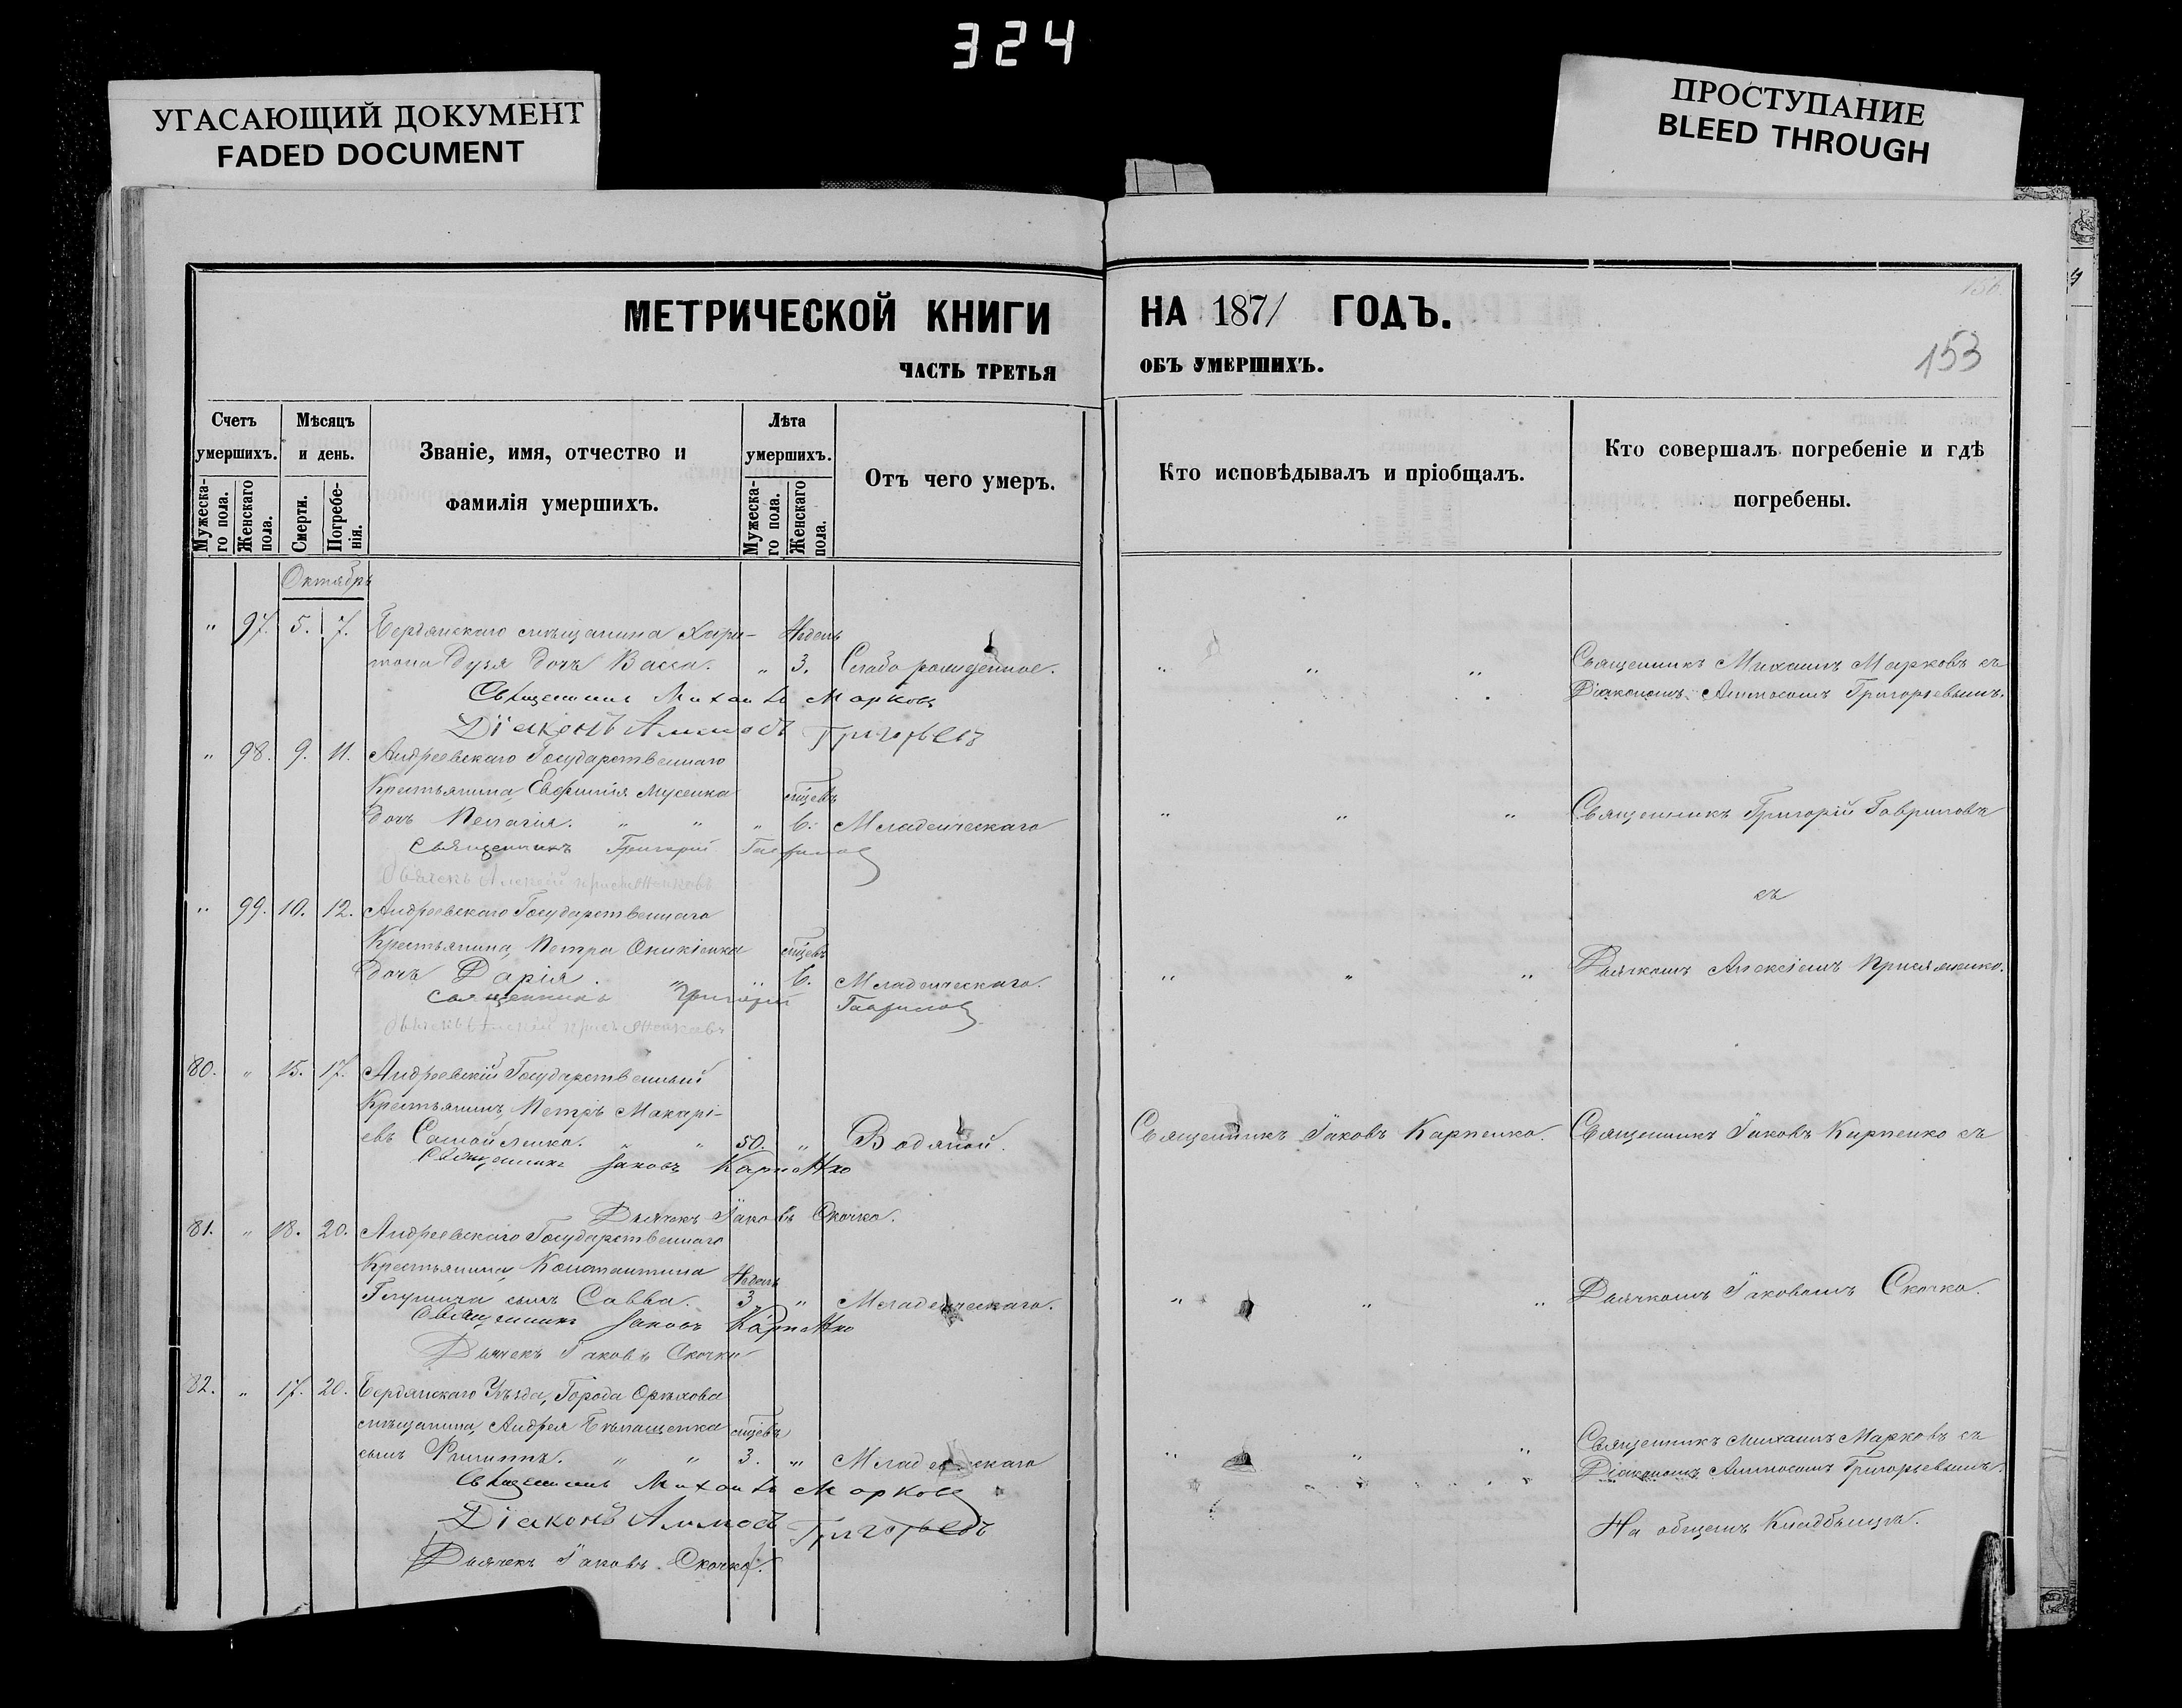 324
УГАСАЮЩИЙ ДОКУМЕНТ
FADED DOCUMENT
ПРОСТУПАНИЕ
BLEED THROUGH
МЕТРИЧЕСКОЙ КНИГИ НА 1871 ГОДЪ.
ЧАСТЬ ТРЕТЬЯ ОБЪ УМЕРШИХЪ.
153
Счетъ умершихъ.
Мужеска-го пола.
Женскаго пола.
Мѣсяцъ и день.
Смерти.
Погребе-нія.
Званіе, имя, отчество и
фамилія умершихъ.
Лѣта умершихъ.
Мужеска-го пола.
Женскаго пола.
Отъ чего умеръ.
Кто исповѣдывалъ и пріобщалъ.
Кто совершалъ погребеніе и гдѣ
погребены.
Октябрь
" 97. 5. 7. Бердянскаго мѣщанина Хари- Недель
тона Дузя дочь Васса. " 3. Слабо рожденное. " " " Священникъ Михаилъ Марковъ съ
Діакономъ Аммосомъ Григорьевымъ.
Священникъ Михаилъ Марковъ
Діаконъ Аммосъ Григорьевъ
" 98. 9. 11. Андреевскаго Государственнаго
Крестьянина, Евфимія мѣсяцъ
дочь Пелагія. " " " 6. Младенческаго " " " Священникъ Григорій Гавриловъ
Священникъ Григорій Гавриловъ
Дьячекъ Алексій
съ
" 99. 10. 12. Андреевскаго Государственнаго
Крестьянина, Петра Оникіенка мѣсяцъ
дочь Дарія. " " 6. Младенческаго. " " " Дьячкомъ Алексіемъ
Священникъ Григорій Гавриловъ
Дьячекъ Алексій
80. " 15. 17. Андреевскій Государственный
Крестьянинъ, Петръ Макарі-
евъ Самойленко. " " 50. " Водяной. Священникъ Іаковъ Карпенко. Священникъ Іаковъ Карпенко съ
Священникъ Іаковъ Карпенко
Дьячекъ Іаковъ Скочко.
81. " 18. 20. Андреевскаго Государственнаго
Крестьянина, Константина Недель
сынъ Савва. 3. " Младенческаго. " " " Дьячкомъ Іаковомъ Скочко.
Священникъ Іаковъ Карпенко
Дьячекъ Іаковъ Скочко
82. " 17. 20. Бердянскаго Уѣзда, Города Орѣхова
мѣщанина, Андрея мѣсяцъ
сынъ Филиппъ. " " 3. " Младенческаго " " " Священникъ Михаилъ Марковъ съ
Діакономъ Аммосомъ Григорьевымъ.
Священникъ Михаилъ Марковъ
Діаконъ Аммосъ Григорьевъ
На общемъ Кладбищѣ.
Дьячекъ Іаковъ Скочко.